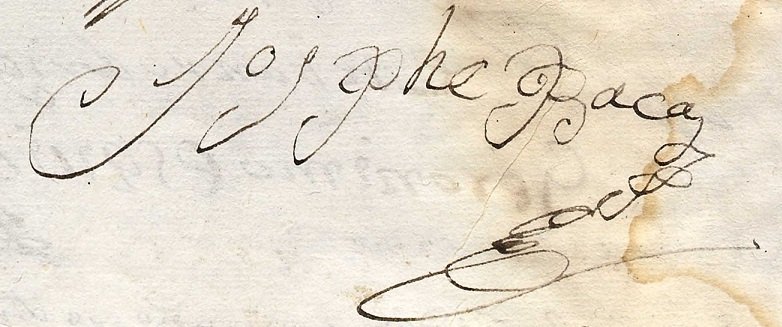 Josphe Baca